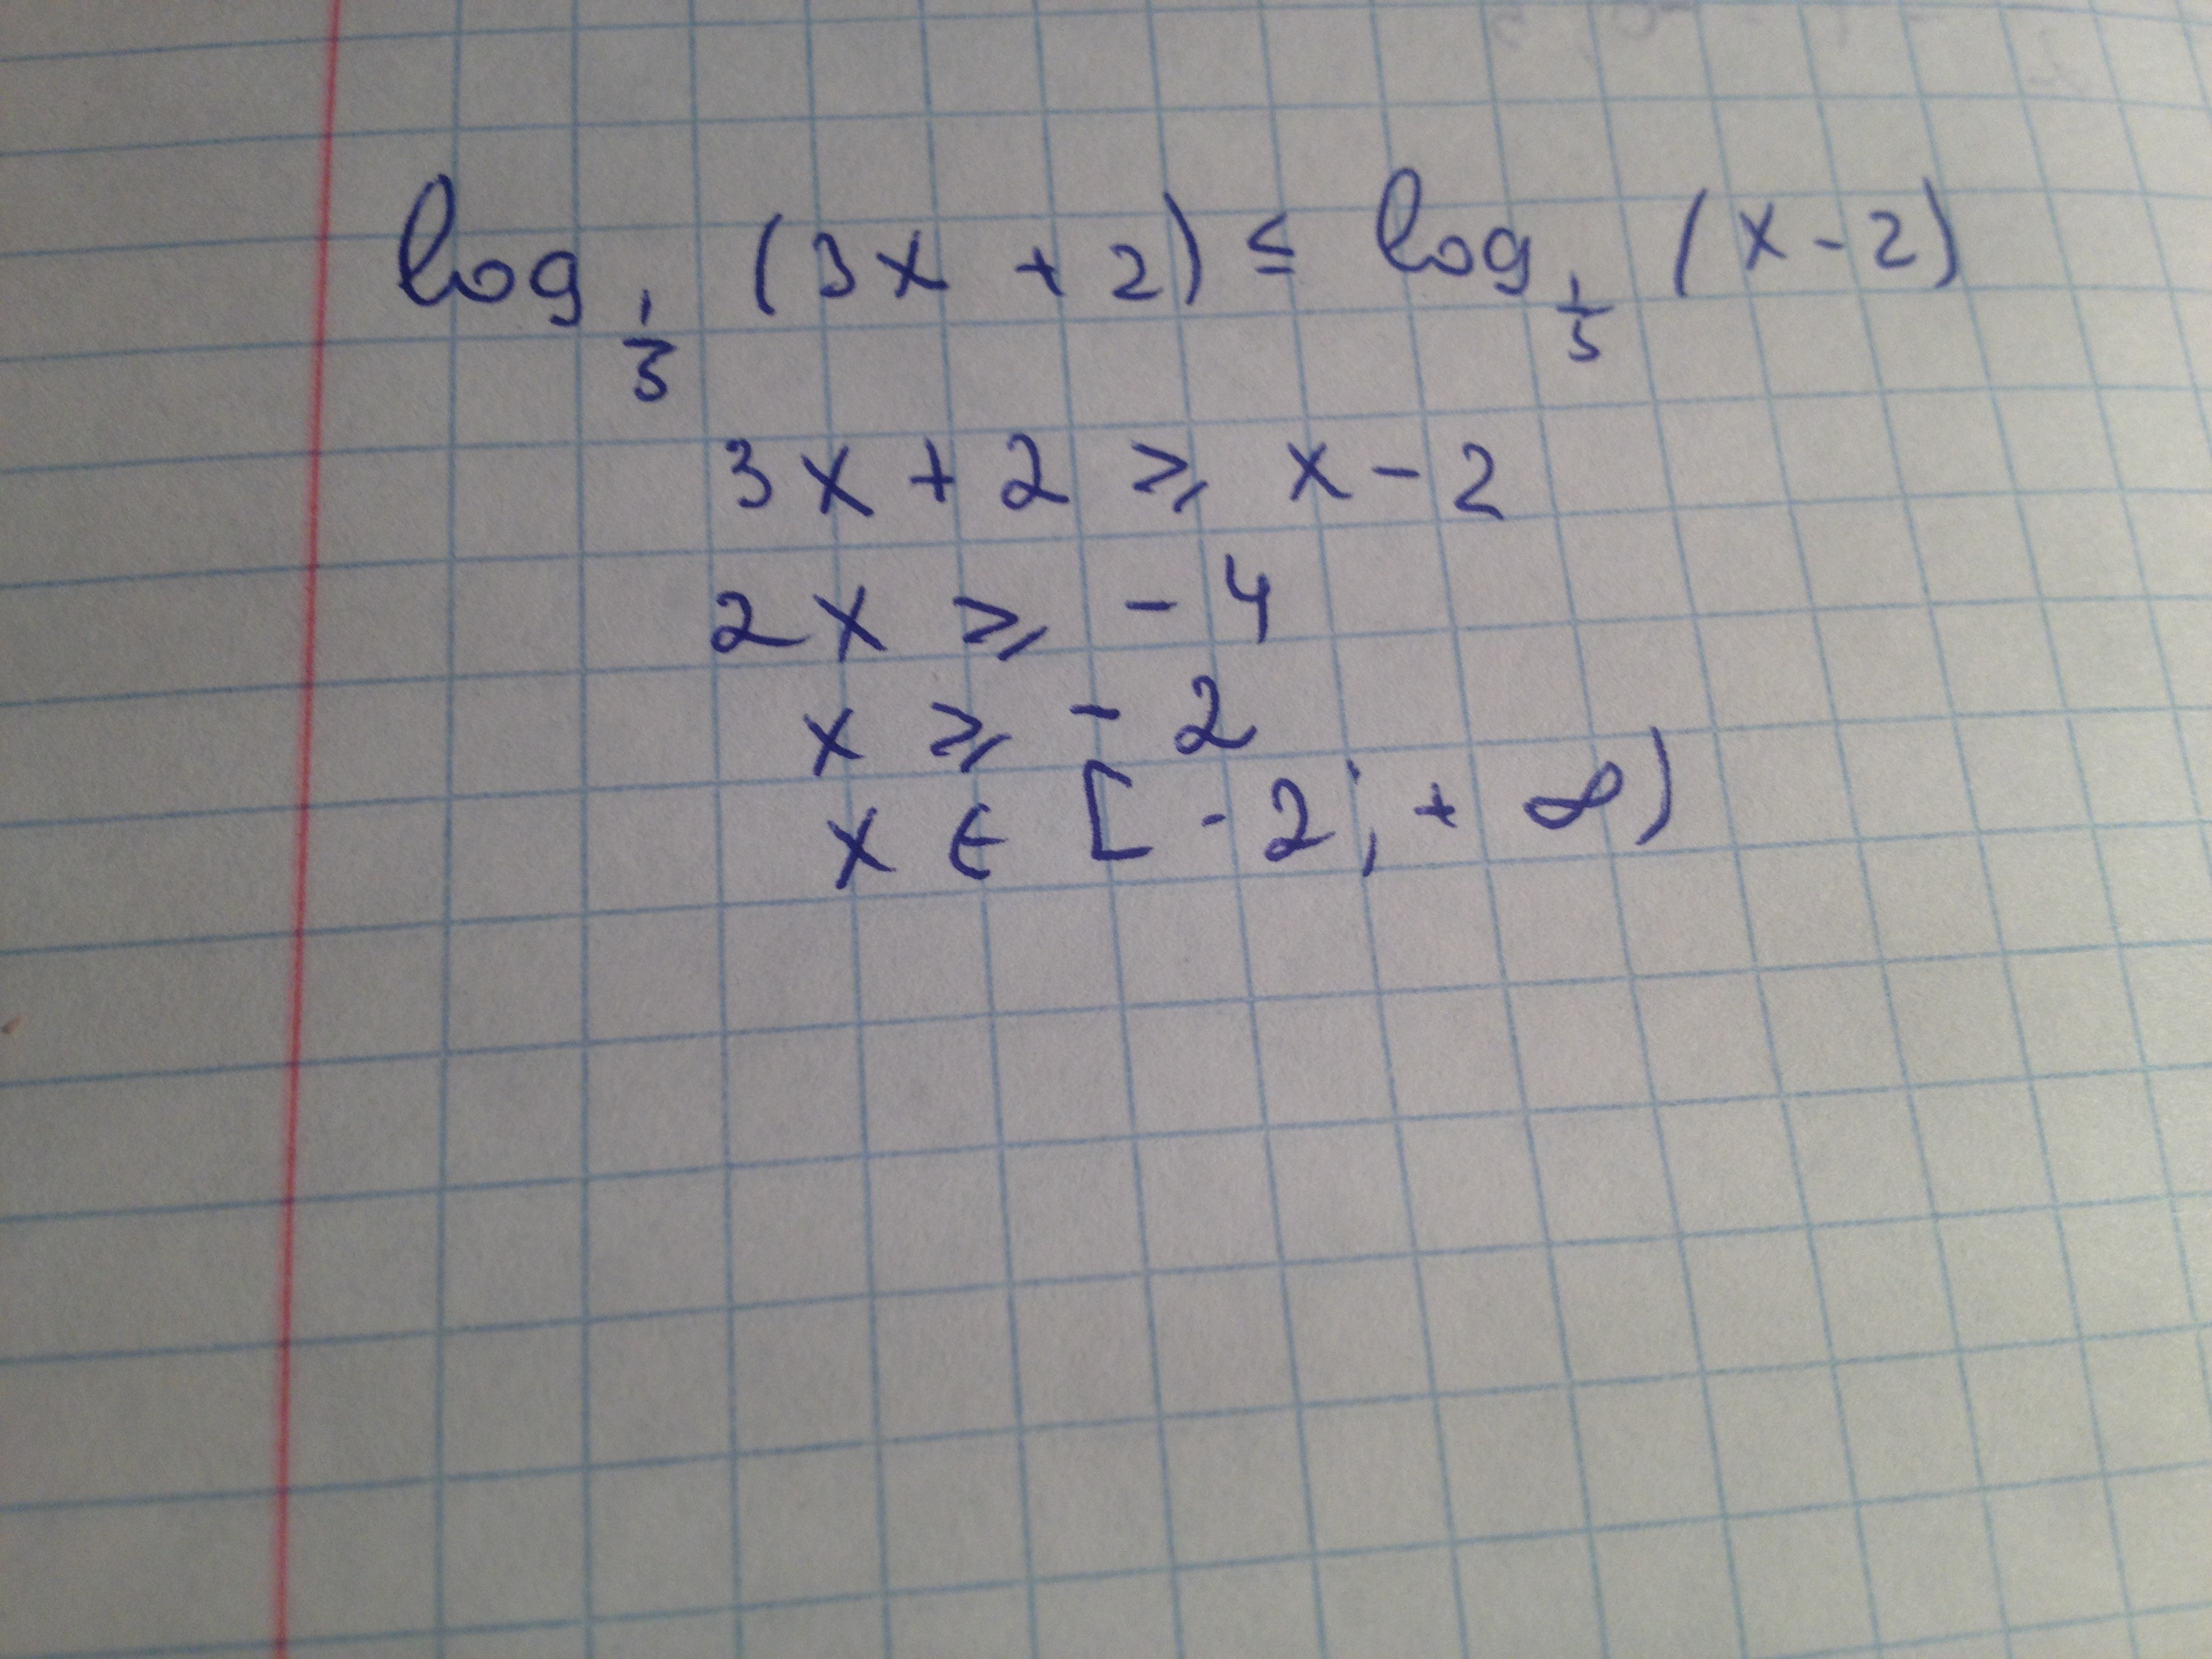 log 1/3 (3x + 2) ≤ log 1/3 (x - 2)
3x + 2 ⩾ x - 2
2x ⩾ - 4
x ⩾ - 2
x ∈ [ - 2 ; + ∞ )